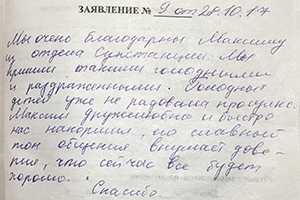 ЗАЯВЛЕНИЕ № 9 от 28.10.17
Мы очень благодарны Максиму
из отдела Субстанции. Мы
пришли такими голодными
и раздраженными. Голодных
детей уже не радовала прогулка.
Максим дружелюбно и быстро
нас накормил, но главный
тон общения внушает дове-
рие, что сейчас все будет
хорошо.
Спасибо